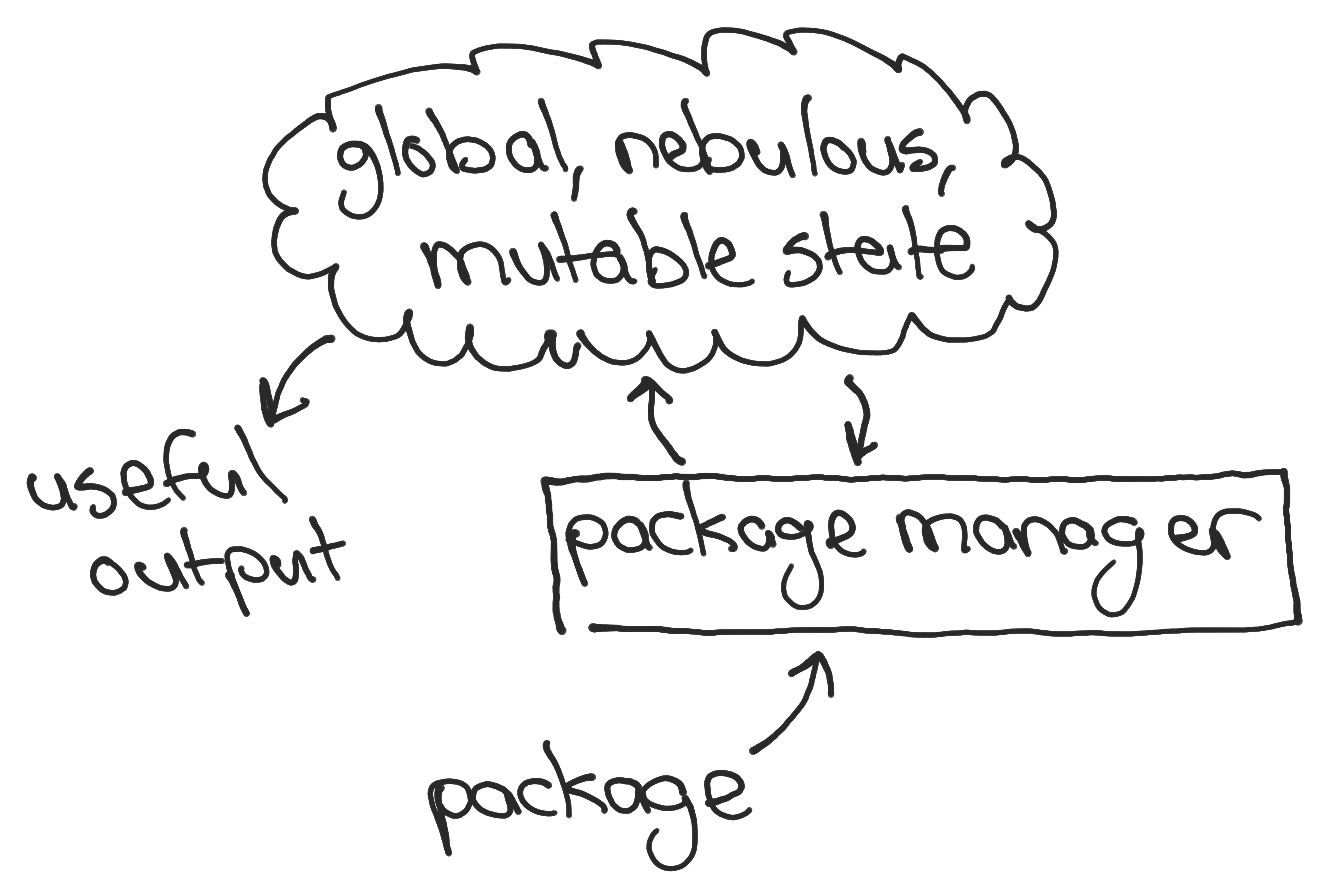 global, nebulous,
mutable state
useful
output
package manager
package